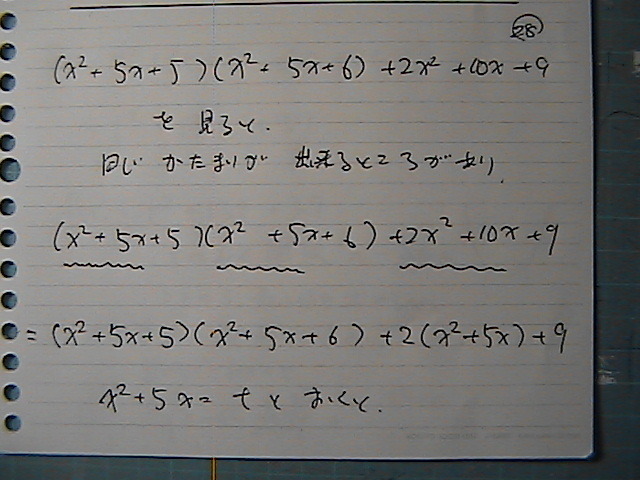 28
(x²+5x+5)(x²+5x+6)+2x²+10x+9
を見ると.
同じかたまりが出来るところがあり,
(x²+5x+5)(x²+5x+6)+2x²+10x+9
=(x²+5x+5)(x²+5x+6)+2(x²+5x)+9
x²+5x=tとおくと.